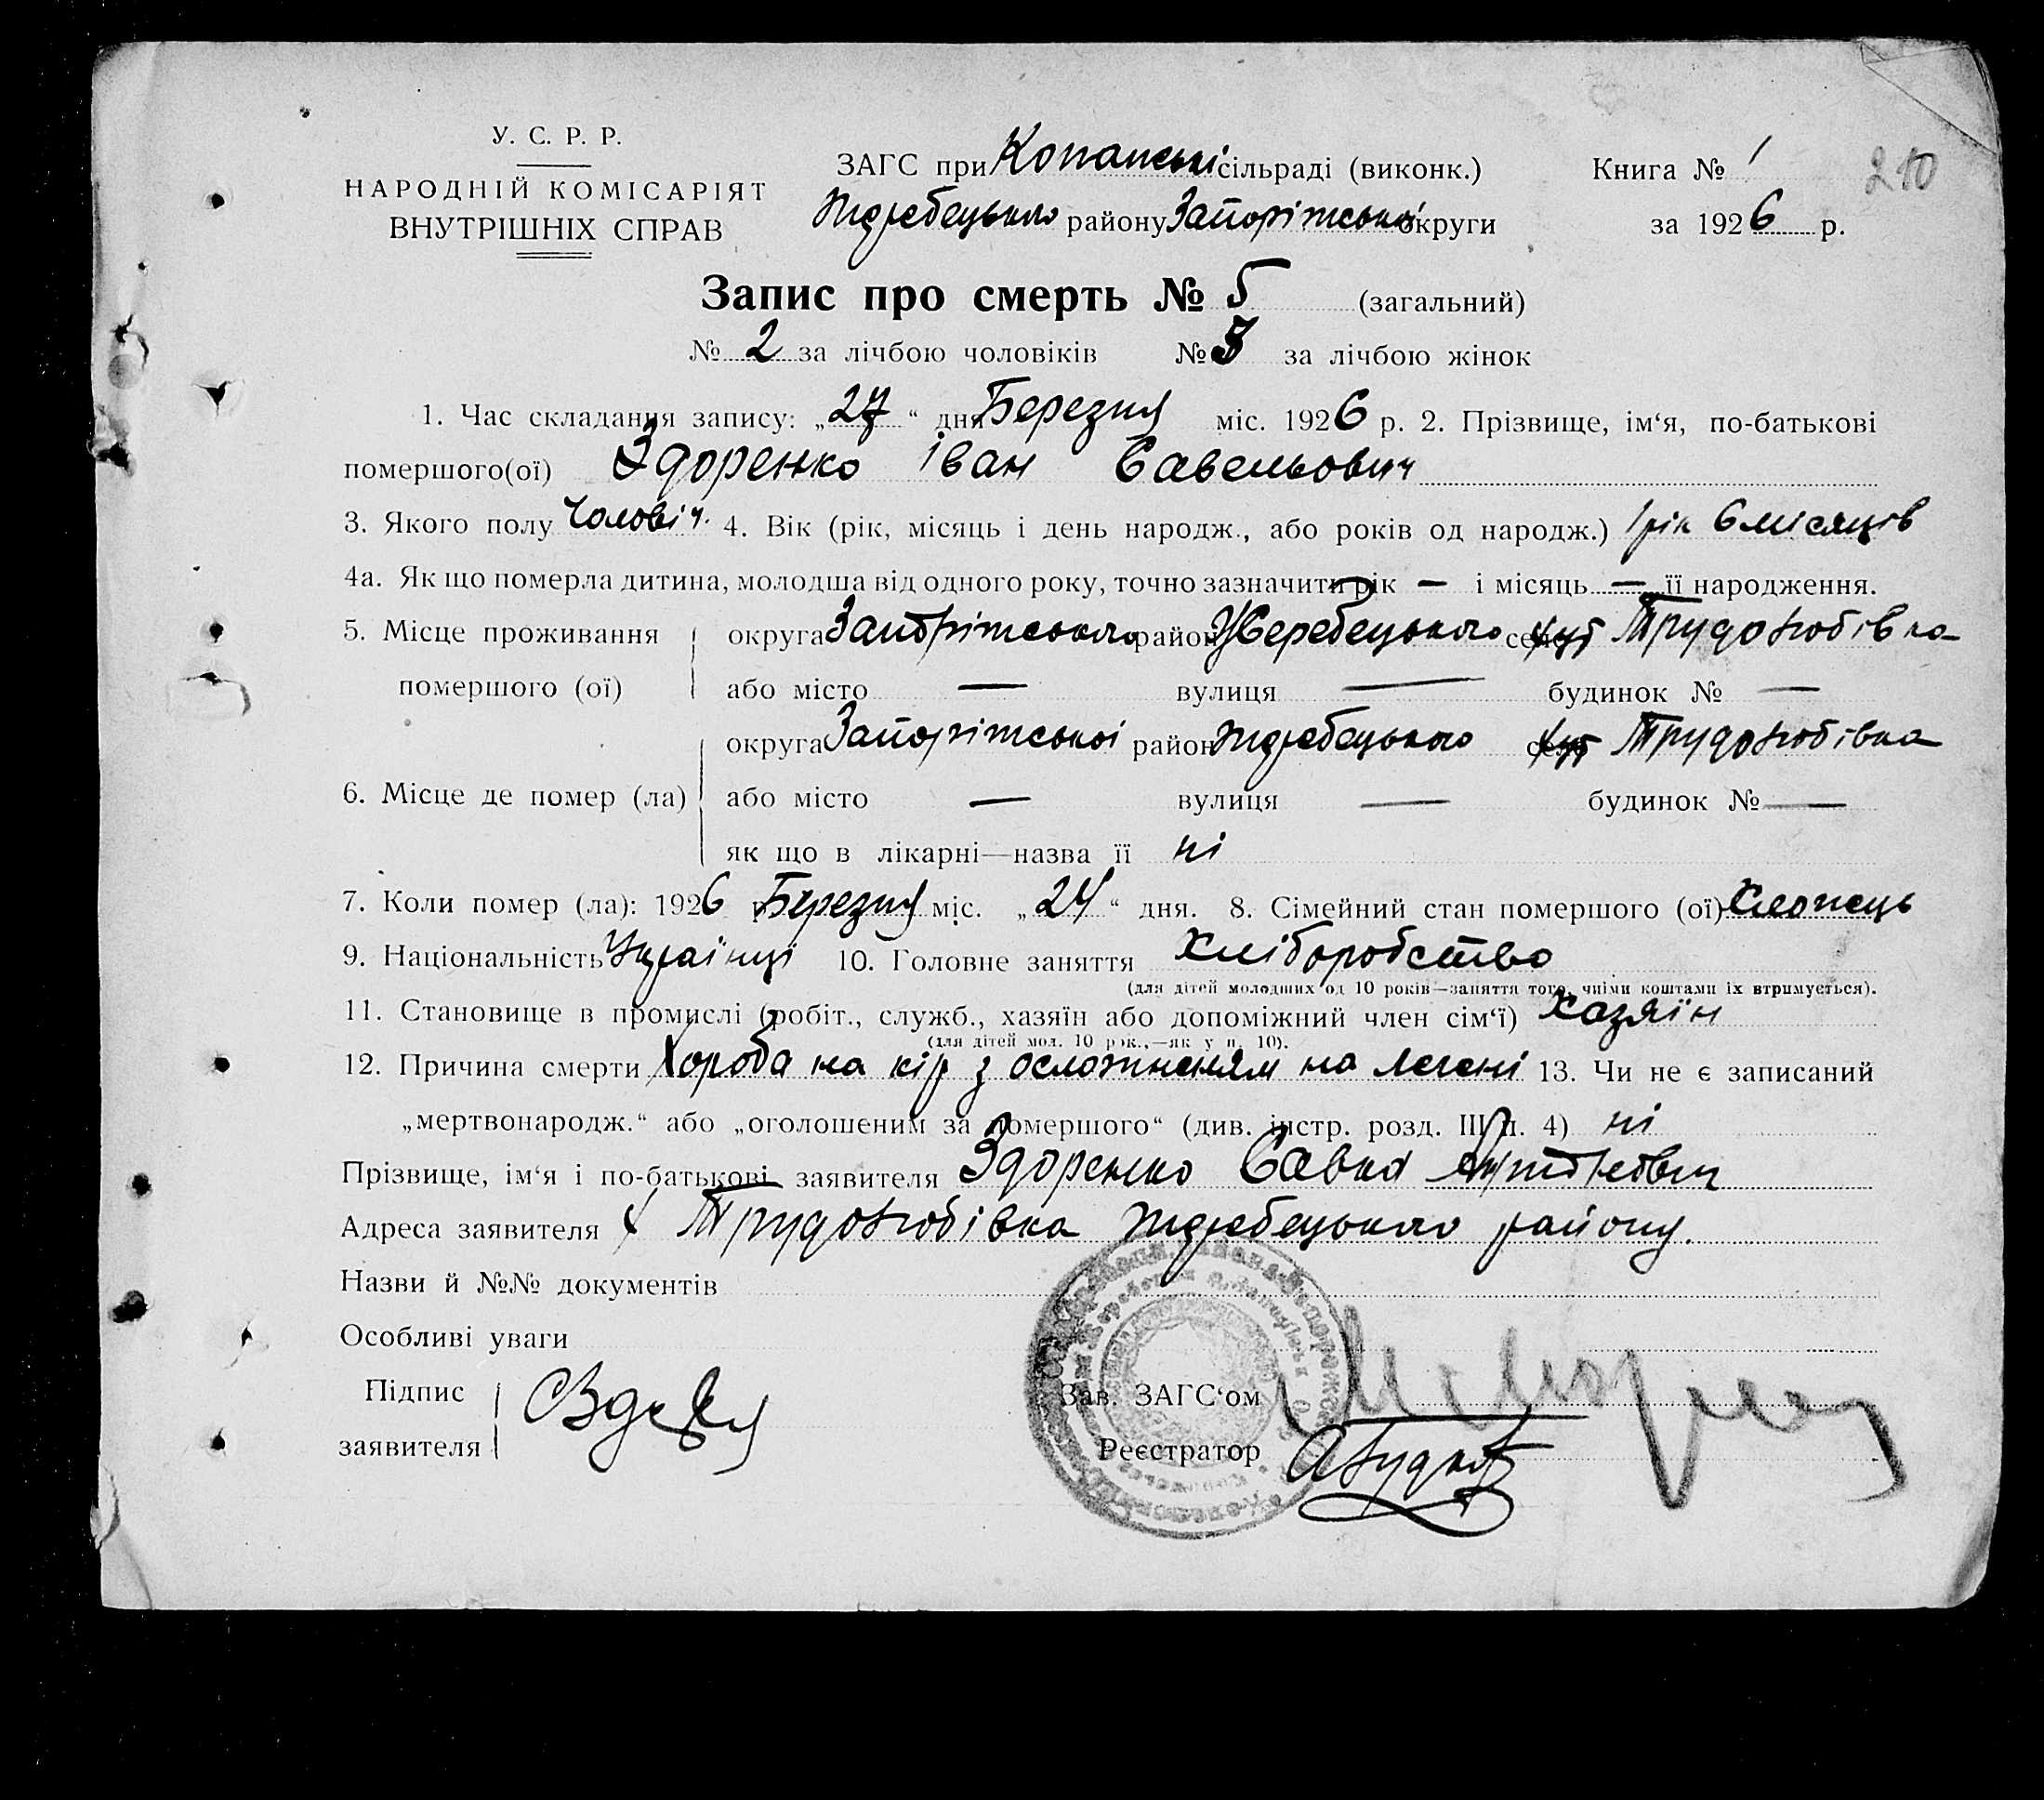 У. С. Р. Р.
НАРОДНІЙ КОМІСАРІЯТ
ВНУТРІШНІХ СПРАВ
ЗАГС при Копанській сільраді (виконк.)
Жеребецького району Запоріжської округи
Книга № 1
210
за 1926 р.
Запис про смерть № 5 (загальний)
№ 2 за лічбою чоловіків № 3 за лічбою жінок
1. Час складання запису: „27“ дня Березня міс. 1926 р. 2. Прізвище, ім‘я, по-батькові
помершого(ої) Здоренко Іван Савельович
3. Якого полу Чоловіч. 4. Вік (рік, місяць і день народж., або років од народж.) 1 рік 6 місяців
4а. Як що померла дитина, молодша від одного року, точно зазначити рік — і місяць — її народження.
5. Місце проживання помершого (ої)
округа Запоріжського район Жеребецького село хут Трудолюбівка
або місто — вулиця — будинок № —
6. Місце де помер (ла)
округа Запоріжської район Жеребецького село хут Трудолюбівка
або місто — вулиця — будинок № —
як що в лікарні—назва її ні
7. Коли помер (ла): 1926 р. Березня міс. „24“ дня. 8. Сімейний стан помершого (ої) Хлопець
9. Національність Українці 10. Головне заняття Хліборобство
(для дітей молодших од 10 років—заняття того, чиїми коштами їх втримується).
11. Становище в промислі (робіт., служб., хазяїн або допоміжний член сім‘ї) Хазяїн
(для дітей мол. 10 рок.,—як у п. 10).
12. Причина смерти Хороба на кір з осложненням на легені 13. Чи не є записаний
„мертвонародж.“ або „оголошеним за помершого“ (див. інстр. розд. III п. 4) ні
Прізвище, ім‘я і по-батькові заявителя Здоренко Савка
Адреса заявителя х Трудолюбівка Жеребецького району.
Назви й №№ документів
Особливі уваги
Підпис
заявителя
Зав. ЗАГС‘ом
Реєстратор